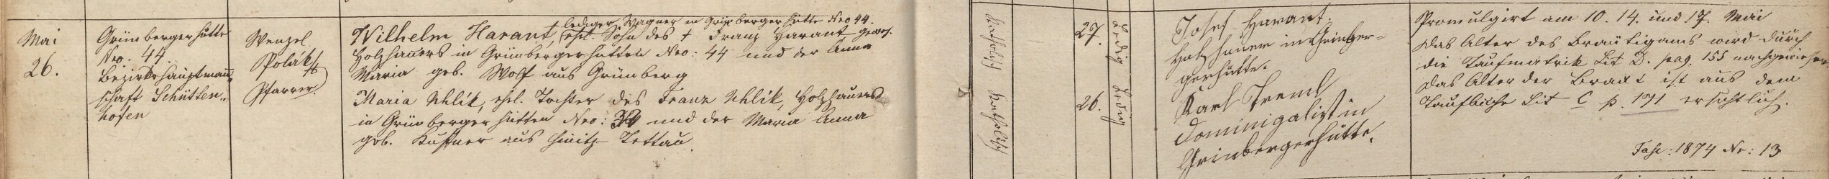 Mai
26.
Grünbergerhütte
Nro. 44.
Bezirkshauptmann-
schaft Schütten-
hofen
Wenzel
Polák
Pfarrer
lediger Wagner in Grünbergerhütte Nro 44.
Wilhelm Harant, ehl. Sohn des † Franz Harant, gewes.
Holzhauers in Grünbergerhütten Nro: 44 und der Anna
Maria geb. Wolf aus Grünberg
Maria Uhlik, ehl. Tochter des Franz Uhlik, Holzhauers
in Grünbergerhütten Nro: und der Maria Anna
geb. Kuffner aus Tettau.
katholisch
katholisch
27.
26.
ledig
ledig
Josef Harant,
Holzhauer in Grünber-
gerhütte.
Karl Trend
Dominigalist in
Grünbergerhütte.
Promulgirt am 10. 14. und 17. Mai
Das Alter des Bräutigams wird durch
die Taufmatrik Lit D. pag. 155 nachgewiesen
Das Alter der Braut ist aus dem
Taufbuche Lit C p. 171 ersichtlich.
Fasc: 1874 Nr: 13